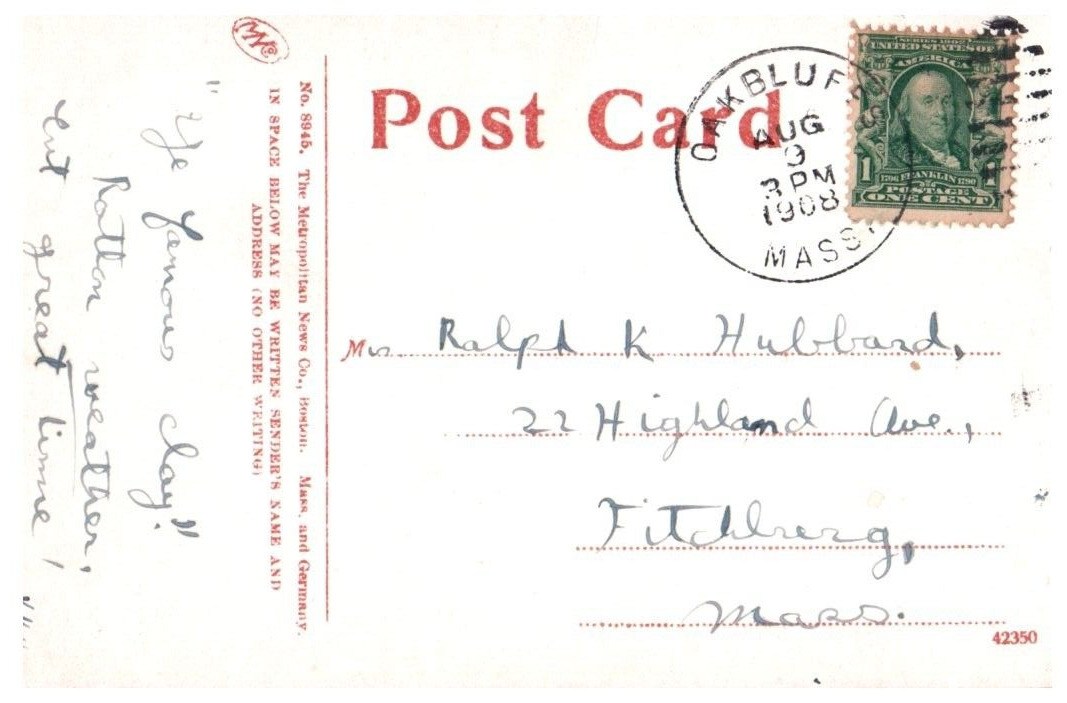 Post Card
OAK BLUFFS
AUG
9
3 PM
1908
MASS.
SERIES 1902
UNITED STATES OF
AMERICA
1
1706 FRANKLIN 1790
POSTAGE
ONE CENT
No. 8945. The Metropolitan News Co., Boston. Mass. and Germany.
IN SPACE BELOW MAY BE WRITTEN SENDER'S NAME AND
ADDRESS (NO OTHER WRITING)
"Ye famous clay!"
Rotten weather,
but great time!
Ralph K Hubbard,
22 Highland Ave.,
Fitchberg,
Mass.
42350